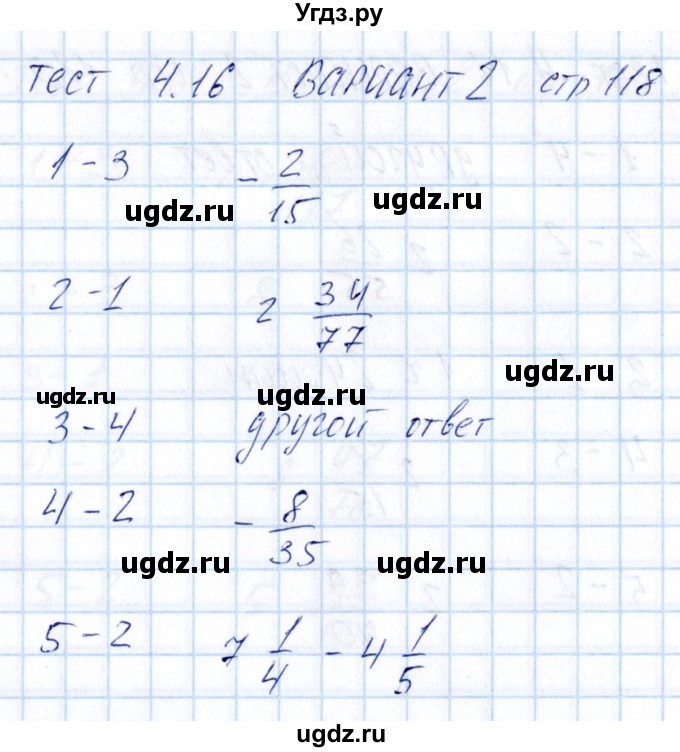 Угдз.ру
Тест 4.16 Вариант 2 стр 118
1 - 3 - 2/15
ugdz.ru ugdz.ru
2 - 1 2 34/77
ugdz.ru
ugdz.ru ugdz.ru
3 - 4 другой ответ
4 - 2 - 8/35
ugdz.ru ugdz.ru
5 - 2 7 1/4 - 4 1/5
ugdz.ru